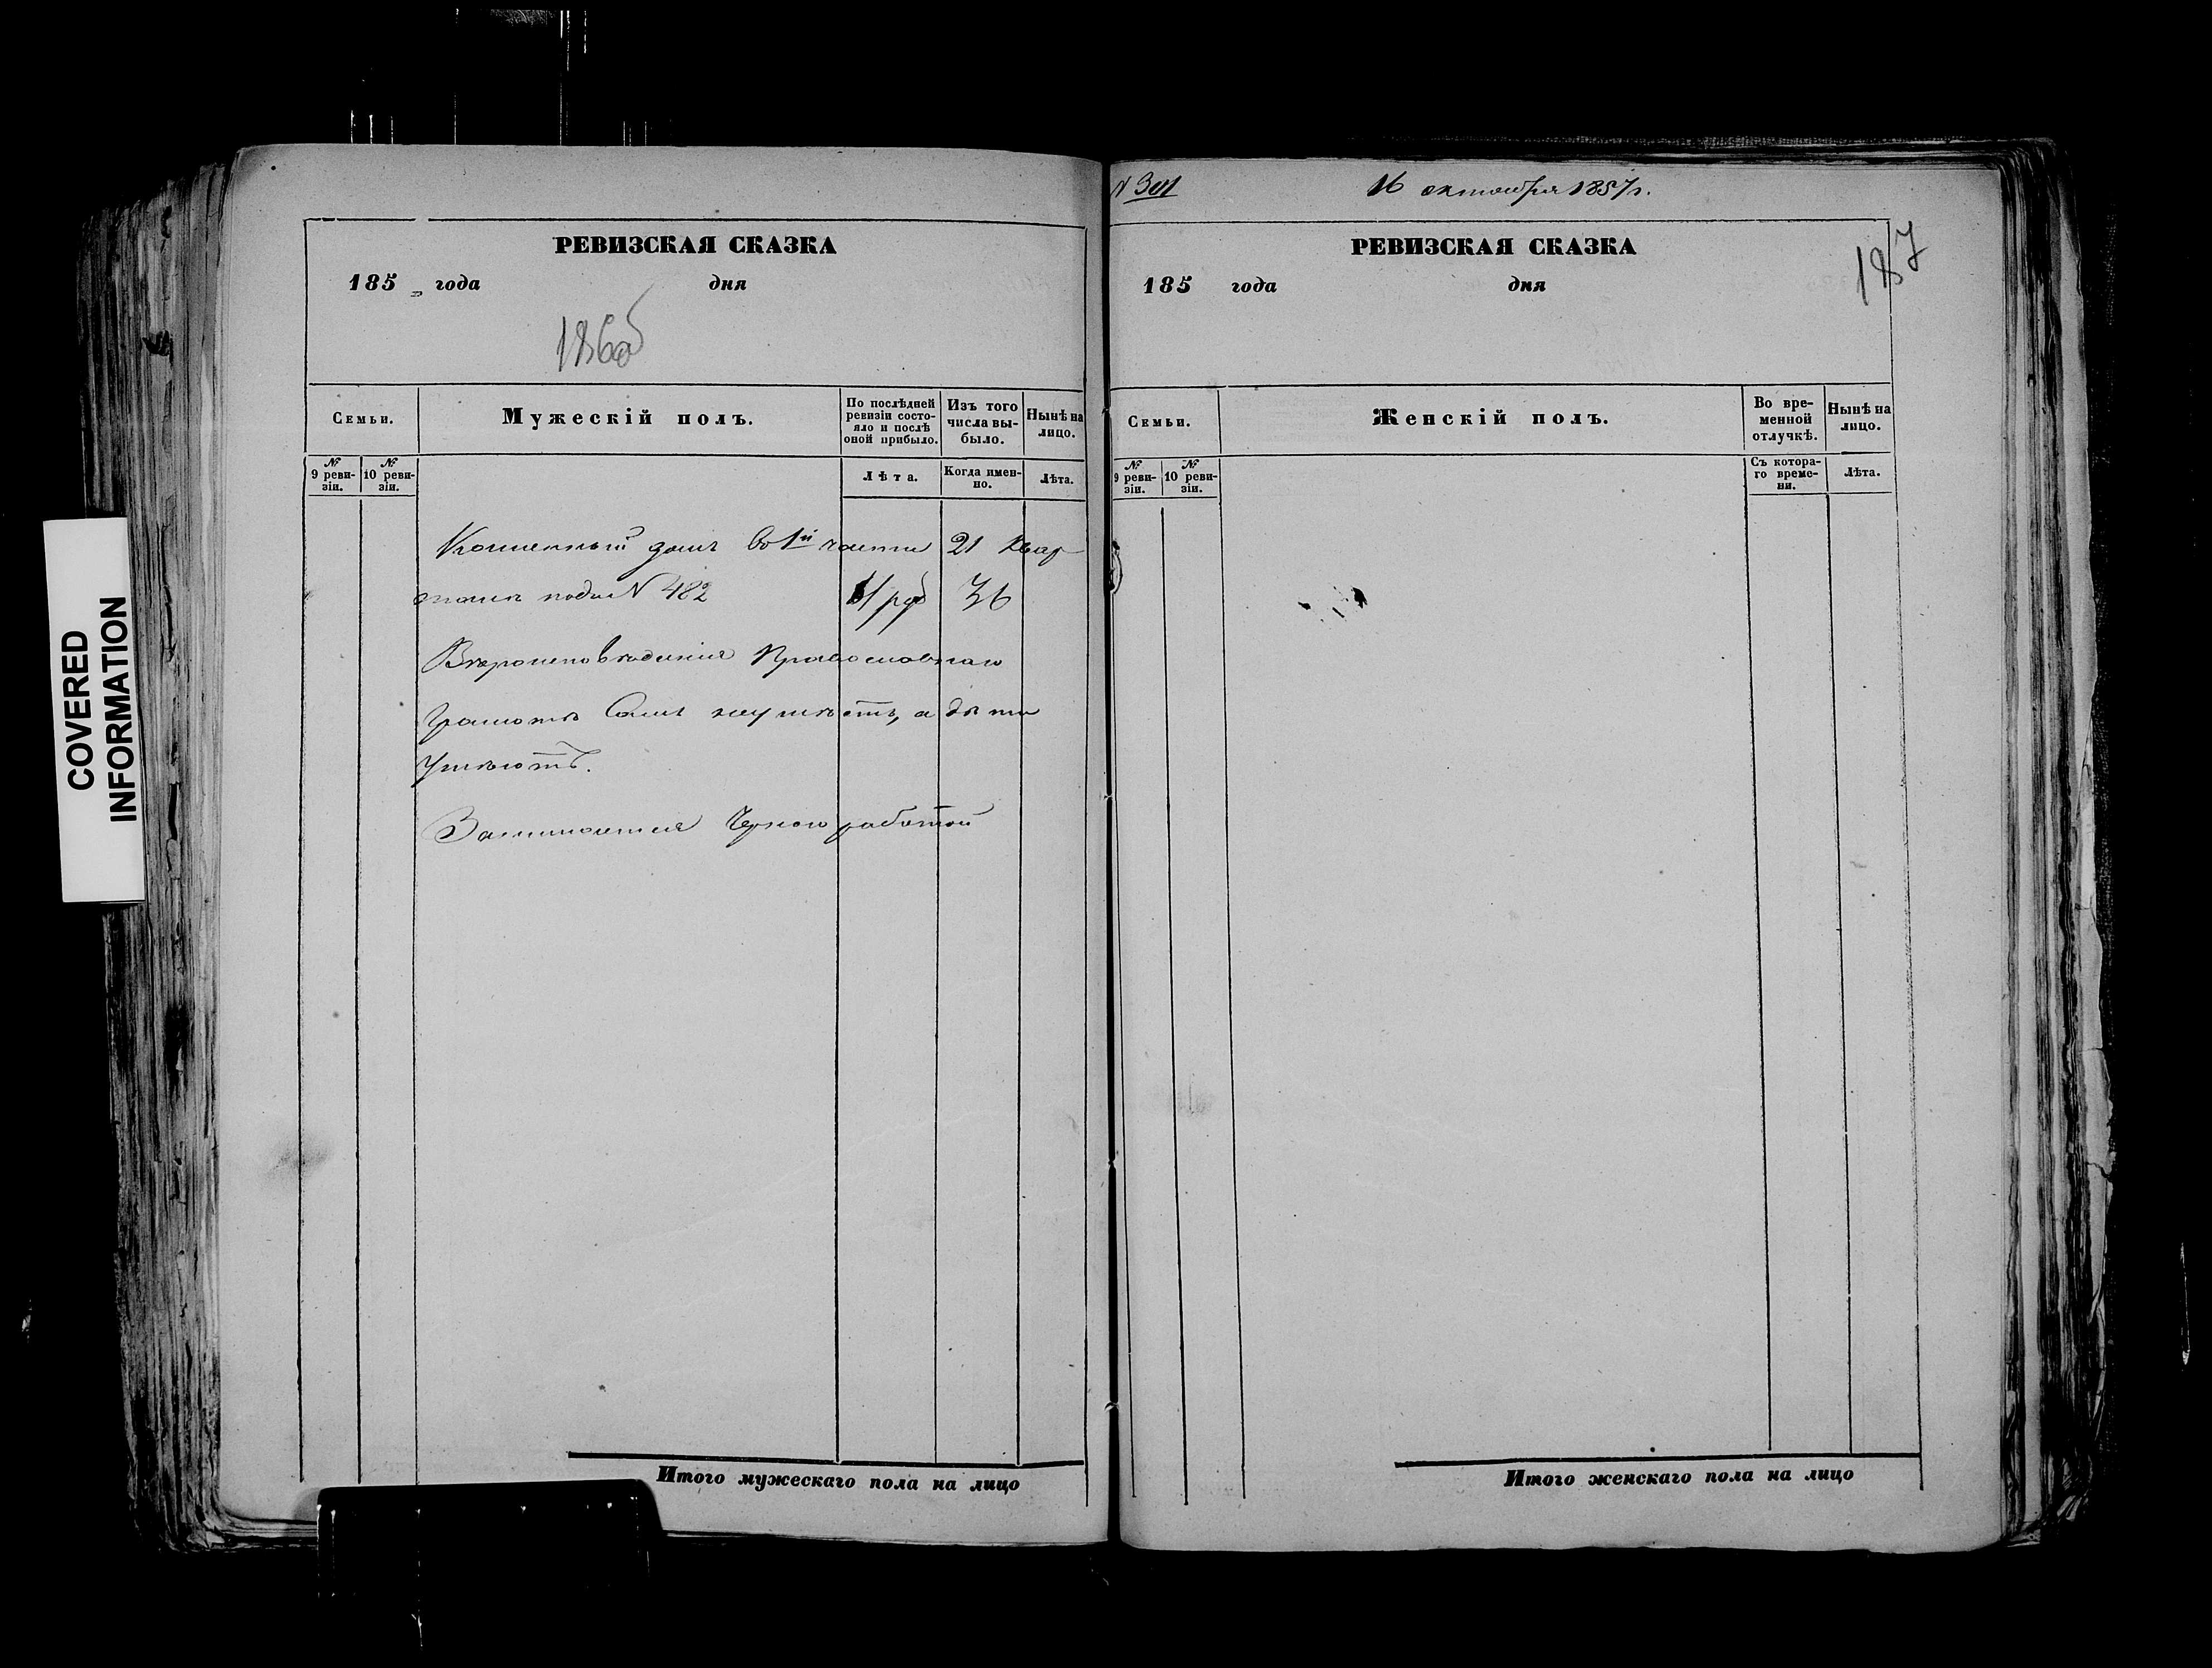 COVERED
INFORMATION
РЕВИЗСКАЯ СКАЗКА
185 года дня
186об
Семьи.
Мужескій полъ.
По послѣдней ревизіи состояло и послѣ оной прибыло.
Изъ того числа выбыло.
Нынѣ на лицо.
№ 9 ревизіи.
№ 10 ревизіи.
Лѣта.
Когда именно.
Лѣта.
Каменный домъ во 1й части 21 квар
талѣ подъ N 482
36
Вѣроисповѣданія Православнаго
Грамотѣ Самъ неумѣетъ, а дѣти
Умѣютъ.
Занимается Черною работой
Итого мужескаго пола на лицо
N 301
16 октября 1857 г.
РЕВИЗСКАЯ СКАЗКА
187
185 года дня
Семьи.
Женскій полъ.
Во временной отлучкѣ.
Нынѣ на лицо.
№ 9 ревизіи.
№ 10 ревизіи.
Съ котораго времени.
Лѣта.
Итого женскаго пола на лицо